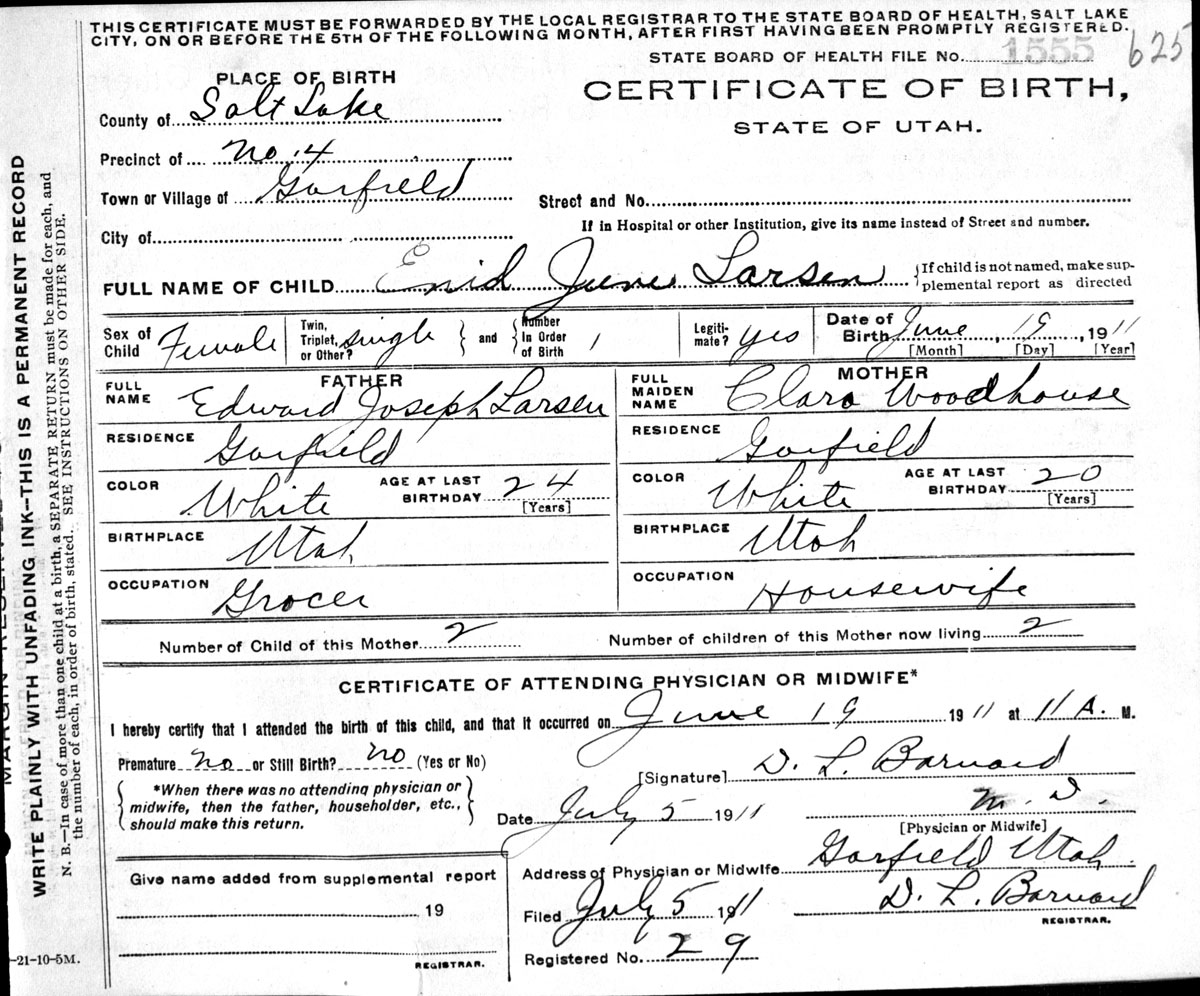 THIS CERTIFICATE MUST BE FORWARDED BY THE LOCAL REGISTRAR TO THE STATE BOARD OF HEALTH, SALT LAKE
CITY, ON OR BEFORE THE 5TH OF THE FOLLOWING MONTH, AFTER FIRST HAVING BEEN PROMPTLY REGISTERED.
STATE BOARD OF HEALTH FILE No. 1555 625
PLACE OF BIRTH
CERTIFICATE OF BIRTH,
STATE OF UTAH.
County of Salt Lake
Precinct of No. 4
Town or Village of Garfield
Street and No.
If in Hospital or other Institution, give its name instead of Street and number.
City of
FULL NAME OF CHILD Enid June Larsen {If child is not named, make sup-
plemental report as directed
Sex of Child Female
Twin, Triplet, or Other? single } and { Number In Order of Birth 1
Legiti-mate? yes
Date of Birth June, 19, 1911
[Month] [Day] [Year]
FATHER
FULL NAME Edward Joseph Larsen
RESIDENCE Garfield
COLOR White AGE AT LAST BIRTHDAY 24
[Years]
BIRTHPLACE Utah
OCCUPATION Grocer
MOTHER
FULL MAIDEN NAME Clara Woodhouse
RESIDENCE Garfield
COLOR White AGE AT LAST BIRTHDAY 20
[Years]
BIRTHPLACE Utah
OCCUPATION Housewife
Number of Child of this Mother 2 Number of children of this Mother now living 2
CERTIFICATE OF ATTENDING PHYSICIAN OR MIDWIFE*
I hereby certify that I attended the birth of this child, and that it occurred on June 19 1911 at 11 A. M.
Premature no or Still Birth? no (Yes or No)
*When there was no attending physician or
midwife, then the father, householder, etc.,
should make this return.
[Signature] D. L. Barnard
Date July 5 1911 M. D.
[Physician or Midwife]
Address of Physician or Midwife Garfield Utah
Give name added from supplemental report
19
REGISTRAR.
Filed July 5 1911 D. L. Barnard
REGISTRAR.
Registered No. 29
-21-10-5M.
WRITE PLAINLY WITH UNFADING INK—THIS IS A PERMANENT RECORD
N. B.—In case of more than one child at a birth, a SEPARATE RETURN must be made for each, and
the number of each, in order of birth, stated. SEE INSTRUCTIONS ON OTHER SIDE.